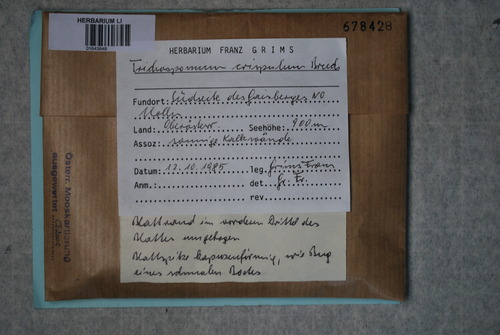 HERBARIUM LI
678428
HERBARIUM FRANZ GRIMS
Trichostomum crispulum Bruch
Fundort: Südseite des Gaisberges NO
Molln
Land: Oberösterr. Seehöhe: 900 m
Assoz: sonnige Kalkwände
Datum: 13.10.1985 leg. Grims Franz
Anm.: det. Gr. Fr.
rev.
Blattrand im vordern Drittel des
Blattes umgebogen
Blattspitze kapuzenförmig, wie Bug
eines schmalen Bootes
Österr. Mooskartierung
ausgewertet